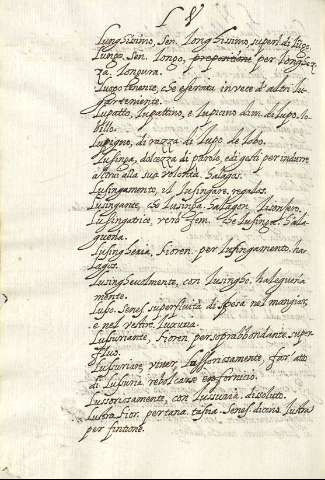 L V
Lunghissimo, Sen. Longhissimo, superl. di Lugo.
Lungo, Sen. Longo, propositione per Longhez
za, Longura.
Luogotenente, che esercita in vece d'altri Lu-
gartemente.
Lupatto, Lupattino, et Lupicino dim. de Lupo. lo-
billo.
Lupigno, di razza di Lupo. de lobo.
Lusinga, dolcezza di parole, e di gesti per indurre
altrui alla sua volontà. halagos.
Lusingamento, il Lusingare. regalos.
Lusingante, che Lusinga. halagen. lisonsero.
Lusingatrice, verò fem. che lusinga. hala-
gueña.
Lusingheria, Fioren. per Lusingamento. ha-
lagos.
Lusinghevolmente, con Lusingho. halagueña
mente.
Lusso. Senes. superfluità di spesa nel mangiar,
e nel vestire. Luxuria.
Lussuriante, Fioren. per soprabbondante. super-
fluo.
Lussuriare, viver Lussoriosamente, far atti
di Lussuria. rebolcarse en fornicio.
Lussoriosamente, con Lussuria. disolutto.
Lustra Fior. per tana. tassia. Senes. dicono Lustra
per fintione.